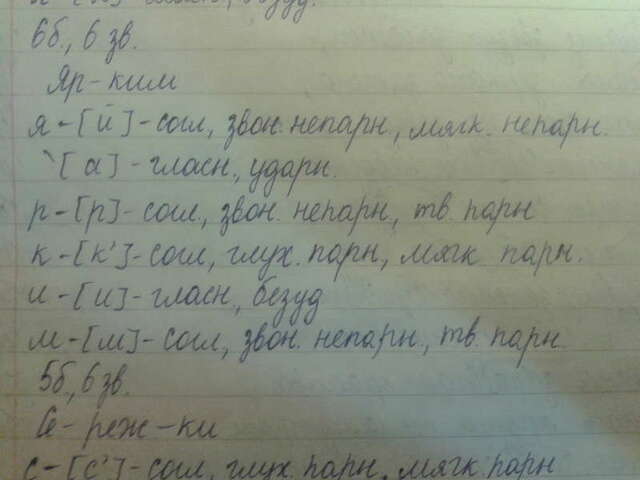 6б., 6 зв.
Яр-ким
я-[й]-согл, звон. непарн., мягк. непарн.
[а]-гласн., ударн.
р-[р]-согл, звон. непарн, тв. парн
к-[к']-согл, глух. парн, мягк парн.
и-[и]-гласн., безуд
м-[м]-согл, звон. непарн., тв. парн.
5б., 6 зв.
Се-реж-ки
с-[с']-согл, глух. парн, мягк парн